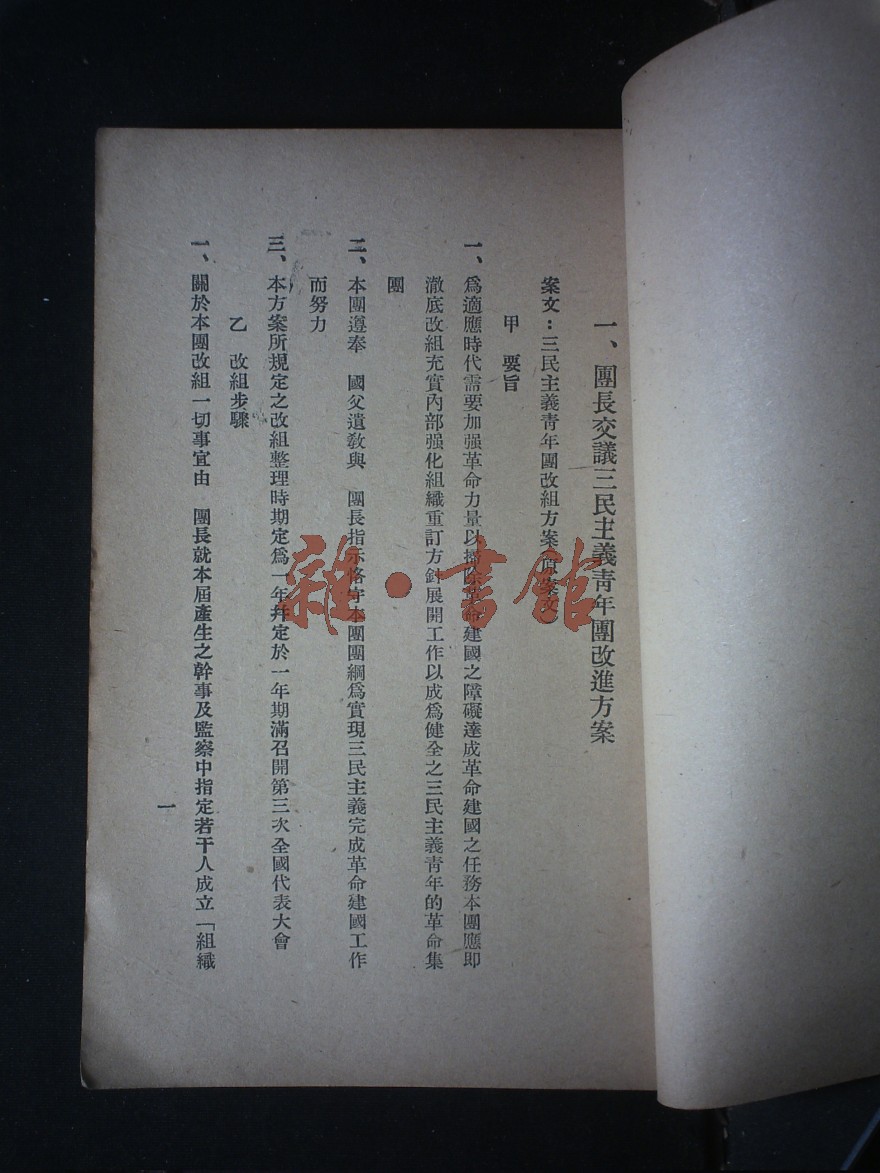 一、團長交議三民主義靑年團改進方案
案文：三民主義靑年團改組方案（原案文）
甲　要旨
一、爲適應時代需要加强革命力量以掃除革命建國之障礙達成革命建國之任務本團應即
澈底改組充實內部强化組織重訂方針展開工作以成爲健全之三民主義靑年的革命集
團
二、本團遵奉　國父遺敎與　團長指示恪守本團團綱爲實現三民主義完成革命建國工作
而努力
三、本方案所規定之改組整理時期定爲一年幷定於一年期滿召開第三次全國代表大會
乙　改組步驟
一、關於本團改組一切事宜由　團長就本屆產生之幹事及監察中指定若干人成立「組織
一
雜·書館